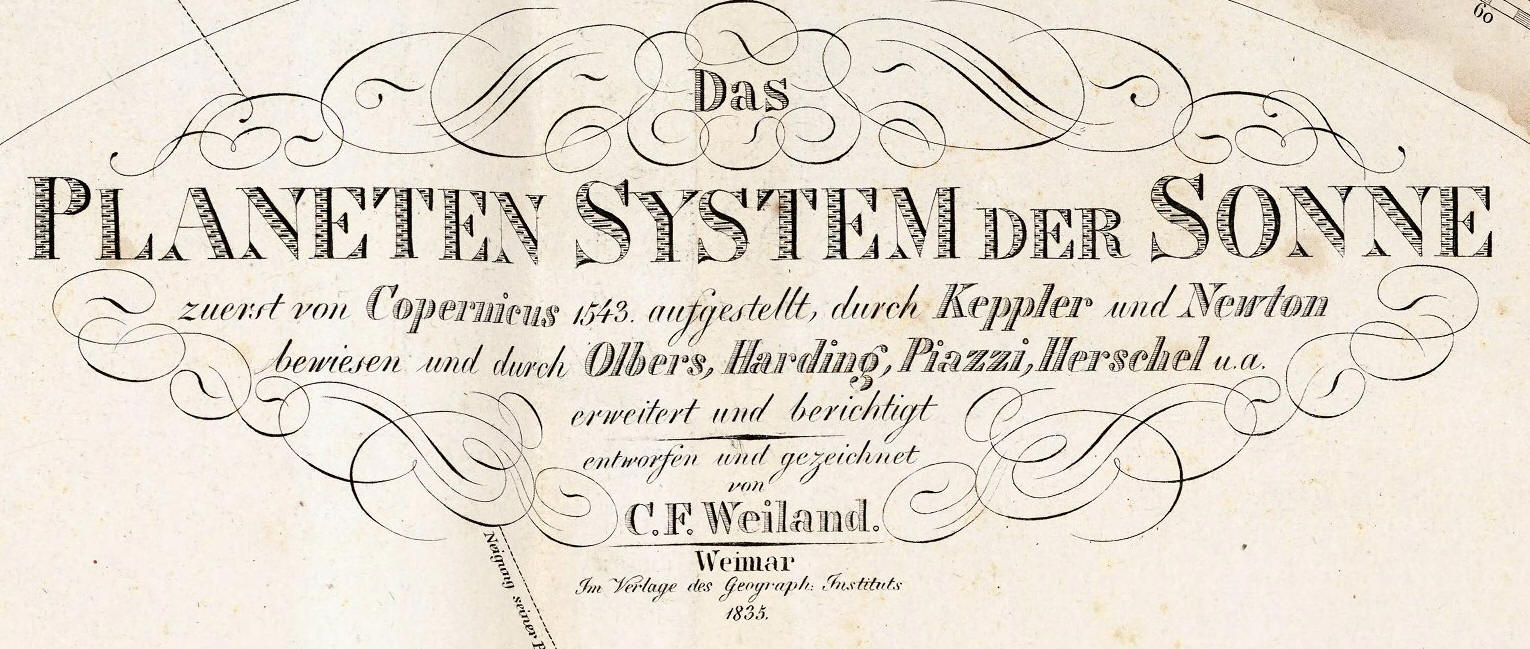 60
Das
PLANETEN SYSTEM DER SONNE
zuerst von Copernicus 1543. aufgestellt, durch Keppler und Newton
bewiesen und durch Olbers, Harding, Piazzi, Herschel u.a.
erweitert und berichtigt
entworfen und gezeichnet
von
C.F. Weiland.
Weimar
Im Verlage des Geograph: Instituts
1835.
Neigung seiner